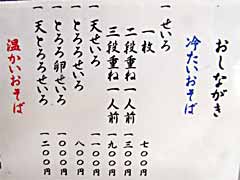 おしながき
冷たいおそば
一 せいろ
一枚 七〇〇円
二段重ね一人前 一三〇〇円
三段重ね一人前 一九〇〇円
一 天せいろ 一一〇〇円
一 とろろせいろ 八〇〇円
一 とろろ卵せいろ 一〇〇〇円
一 天とろろせいろ 一二〇〇円
温かいおそば